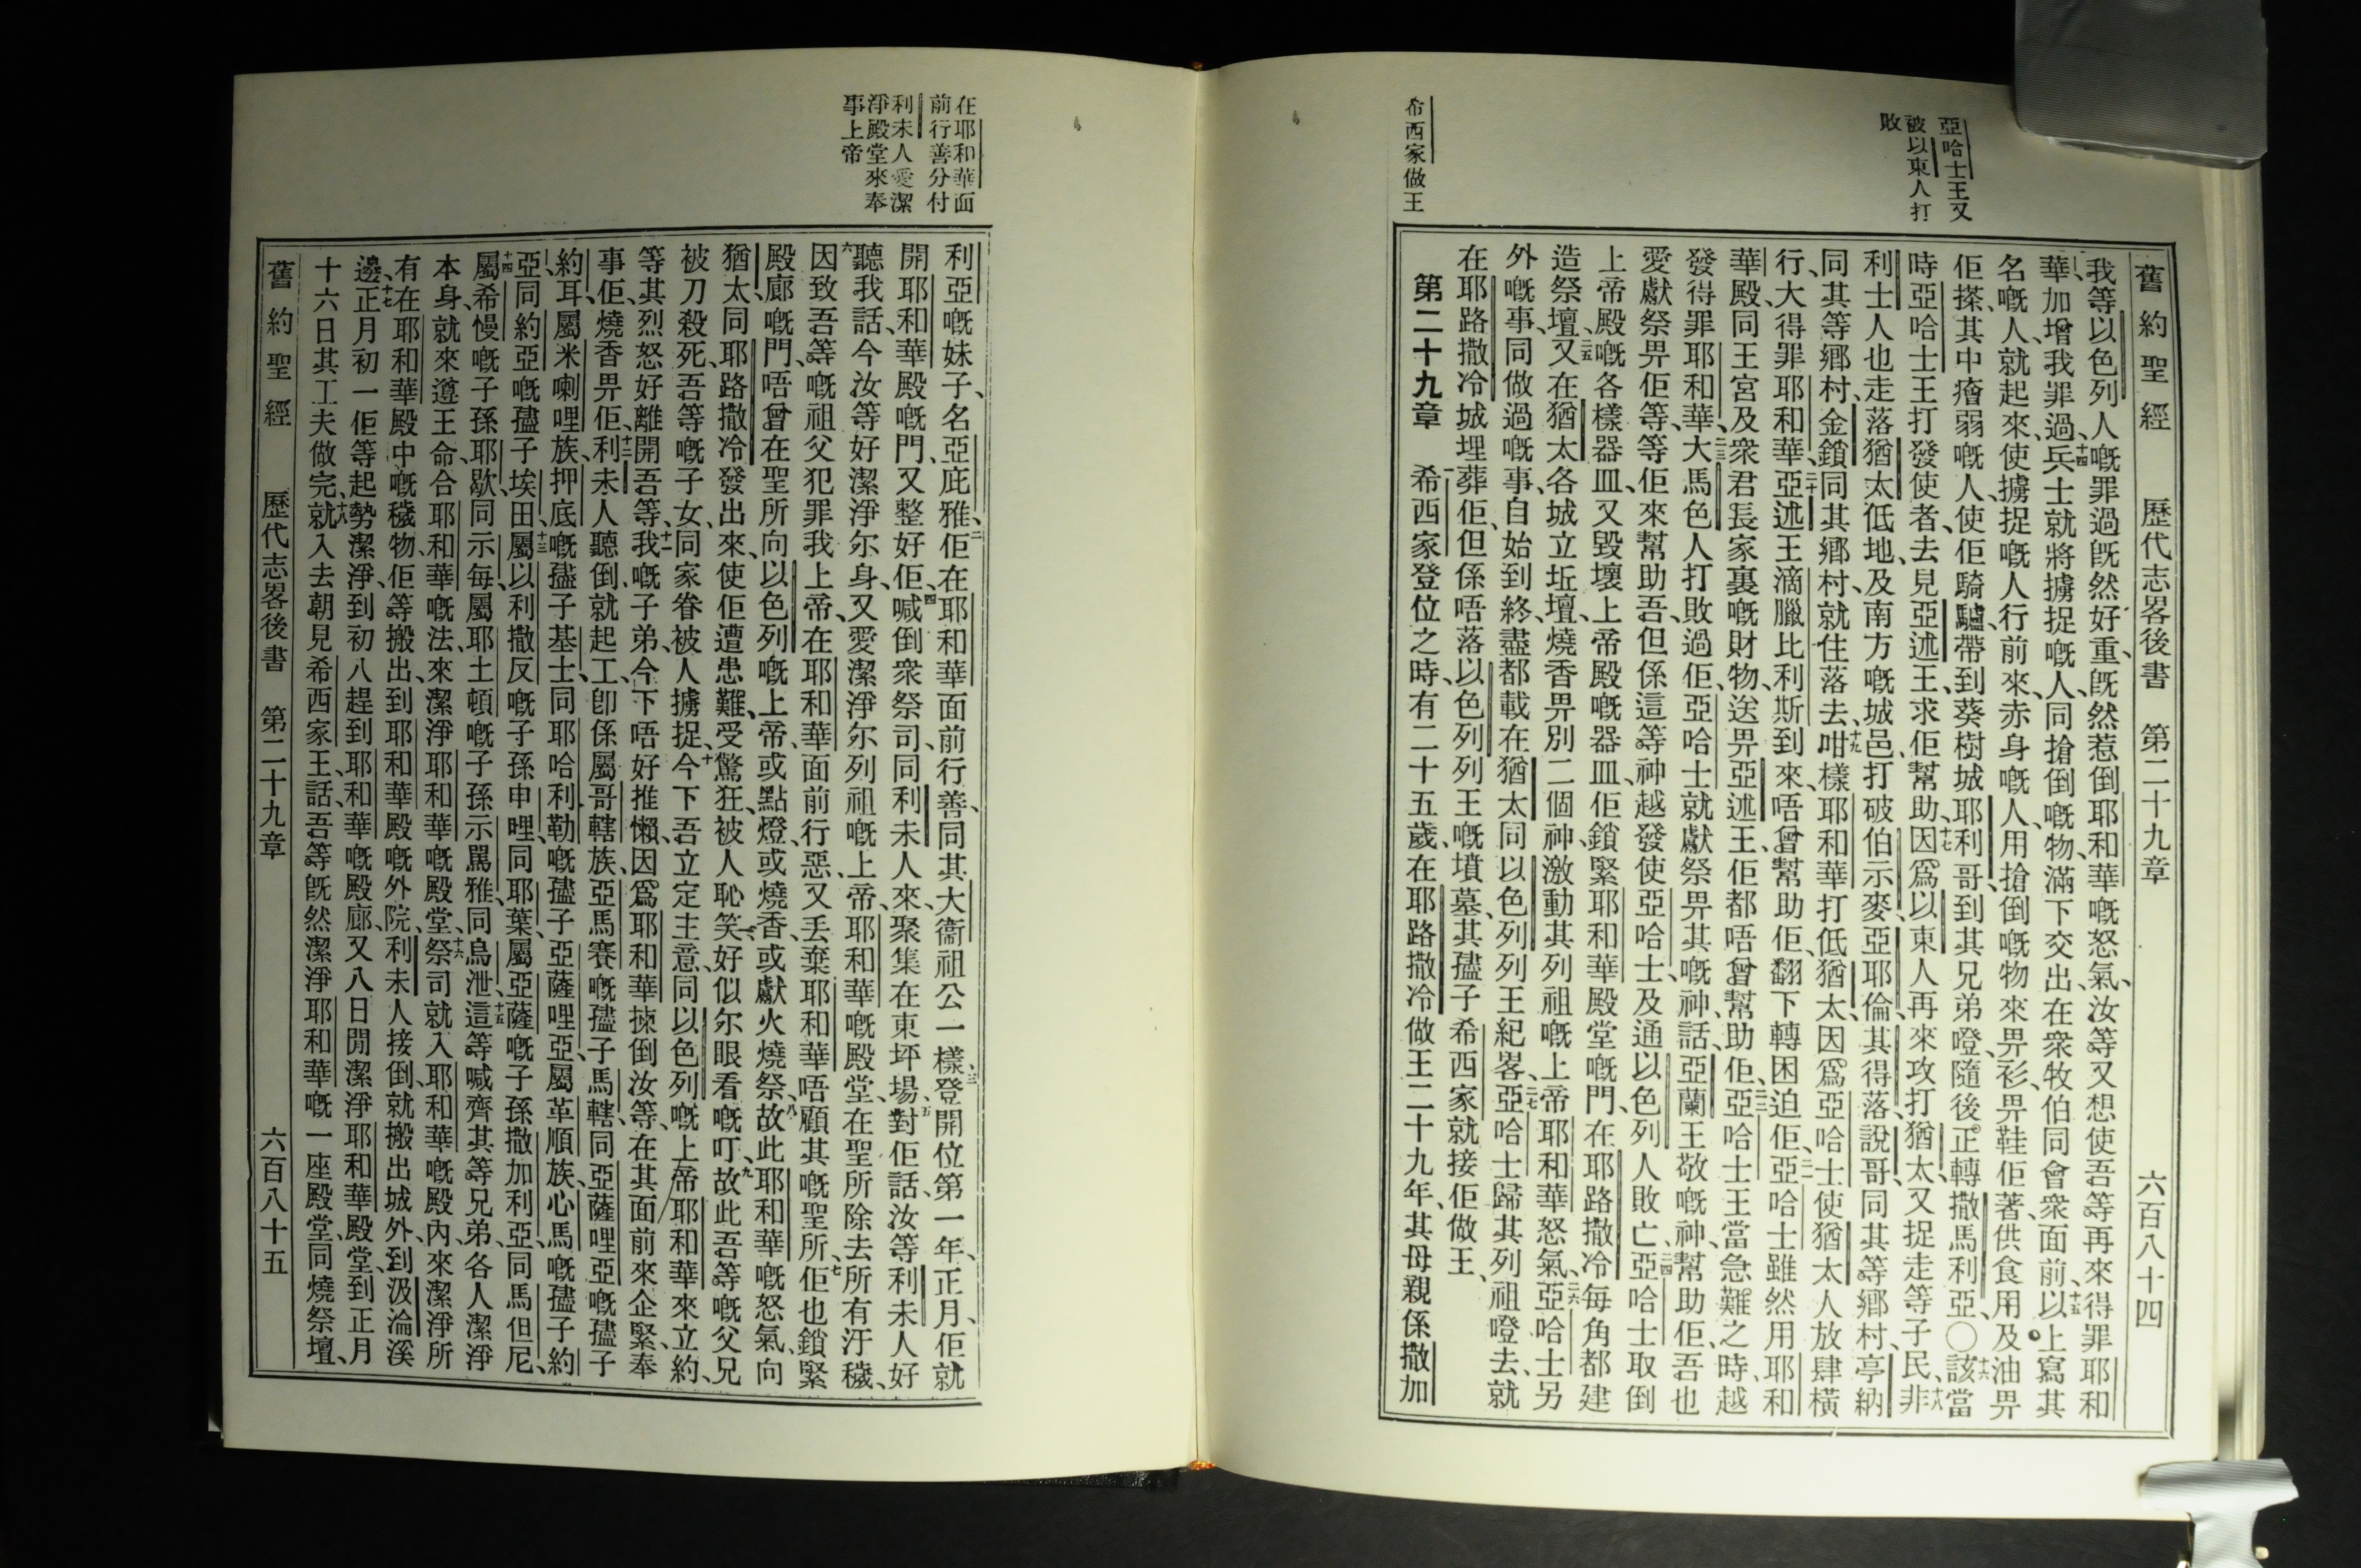 亞哈士王又
被以東人打
敗
希西家做王
舊約聖經　歷代志畧後書　第二十九章　六百八十四
我等以色列人嘅罪過旣然好重、旣然惹倒耶和華嘅怒氣、汝等又想使吾等再來得罪耶和
華、加增我罪過、十四兵士就將擄捉嘅人、同搶倒嘅物、滿下交出在衆牧伯同會衆面前、十五以上寫其
名嘅人、就起來、使擄捉嘅人行前來、赤身嘅人、用搶倒嘅物來畀衫、畀鞋佢著、供食用及油畀
佢搽、其中㾪弱嘅人、使佢騎驢、帶到葵樹城耶利哥、到其兄弟嶝、隨後正轉撒馬利亞、〇十六該當
時亞哈士王打發使者、去見亞述王、求佢幫助、十七因爲以東人再來攻打猶太、又捉走等子民、十八非
利士人也走落猶太低地、及南方嘅城邑、打破伯示麥、亞耶倫、其得落、說哥、同其等鄕村、亭納
同其等鄕村、金鎖同其鄕村、就住落去、十九咁樣耶和華打低猶太、因爲亞哈士使猶太人放肆橫
行、大得罪耶和華、二十亞述王滴臘比利斯到來、唔曾幫助佢、翻下轉困迫佢、二一亞哈士雖然用耶和
華殿、同王宮及衆君長家裏嘅財物、送畀亞述王、佢都唔曾幫助佢、二二亞哈士王當急難之時、越
發得罪耶和華、二三大馬色人打敗過佢、亞哈士就獻祭畀其嘅神、話、亞蘭王敬嘅神、幫助佢、吾也
愛獻祭畀佢等、等佢來幫助吾、但係這等神越發使亞哈士、及通以色列人敗亡、二四亞哈士取倒
上帝殿嘅各樣器皿、又毀壞上帝殿嘅器皿、佢鎖緊耶和華殿堂嘅門、在耶路撒冷每角都建
造祭壇、二五又在猶太各城立坵壇、燒香畀別二個神、激動其列祖嘅上帝耶和華怒氣、二六亞哈士另
外嘅事、同做過嘅事、自始到終、盡都載在猶太同以色列列王紀畧、二七亞哈士歸其列祖嶝去、就
在耶路撒冷城埋葬佢、但係唔落以色列列王嘅墳墓、其孻子希西家就接佢做王、
第二十九章　一希西家登位之時、有二十五歲、在耶路撒冷做王二十九年、其母親係撒加
在耶和華面
前行善分付
利未人愛潔
淨殿堂來奉
事上帝
利亞嘅妹子、名亞庇雅、二佢在耶和華面前行善、同其大衞祖公一樣、三登開位第一年、正月、佢就
開耶和華殿嘅門、又整好佢、四喊倒衆祭司、同利未人來、聚集在東坪場、五對佢話、汝等利未人好
聽我話、今汝等好潔淨尔身、又愛潔淨尔列祖嘅上帝、耶和華嘅殿堂、在聖所除去所有汙穢、
六因致吾等嘅祖父犯罪我上帝、在耶和華面前行惡、又丢棄耶和華、唔顧其嘅聖所、七佢也鎖緊
殿廊嘅門、唔曾在聖所向以色列嘅上帝、或點燈、或燒香、或獻火燒祭、八故此耶和華嘅怒氣、向
猶太、同耶路撒冷發出來、使佢遭患難、受驚狂、被人恥笑、好似尔眼看嘅叮、九故此吾等嘅父兄
被刀殺死、吾等嘅子女、同家眷被人擄捉、十今下吾立定主意、同以色列嘅上帝耶和華來立約、
等其烈怒好離開吾等、十一我嘅子弟、今下唔好推懶、因爲耶和華揀倒汝等、在其面前來企緊、奉
事佢、燒香畀佢、十二利未人聽倒、就起工、卽係屬哥轄族、亞馬賽嘅孻子馬轄、同亞薩哩亞嘅孻子
約耳、屬米喇哩族、押底嘅孻子基士、同耶哈利勒嘅孻子亞薩哩亞、屬革順族、心馬嘅孻子約
亞、同約亞嘅孻子埃田、十三屬以利撒反嘅子孫申哩、同耶葉、屬亞薩嘅子孫撒加利亞、同馬但尼、
十四屬希慢嘅子孫耶歇、同示每、屬耶土頓嘅子孫示駡雅、同烏泄、十五這等喊齊其等兄弟、各人潔淨
本身、就來遵王命、合耶和華嘅法、來潔淨耶和華嘅殿堂、十六祭司就入耶和華嘅殿內、來潔淨所
有在耶和華殿中嘅穢物、佢等搬出、到耶和華殿嘅外院、利未人接倒、就搬出城外、到汲淪溪
邊、十七正月初一佢等起勢潔淨、到初八趕到耶和華嘅殿廊、又八日閒潔淨耶和華殿堂、到正月
十六日其工夫做完、十八就入去朝見希西家王、話、吾等旣然潔淨耶和華嘅一座殿堂、同燒祭壇、
舊約聖經　歷代志畧後書　第二十九章　六百八十五